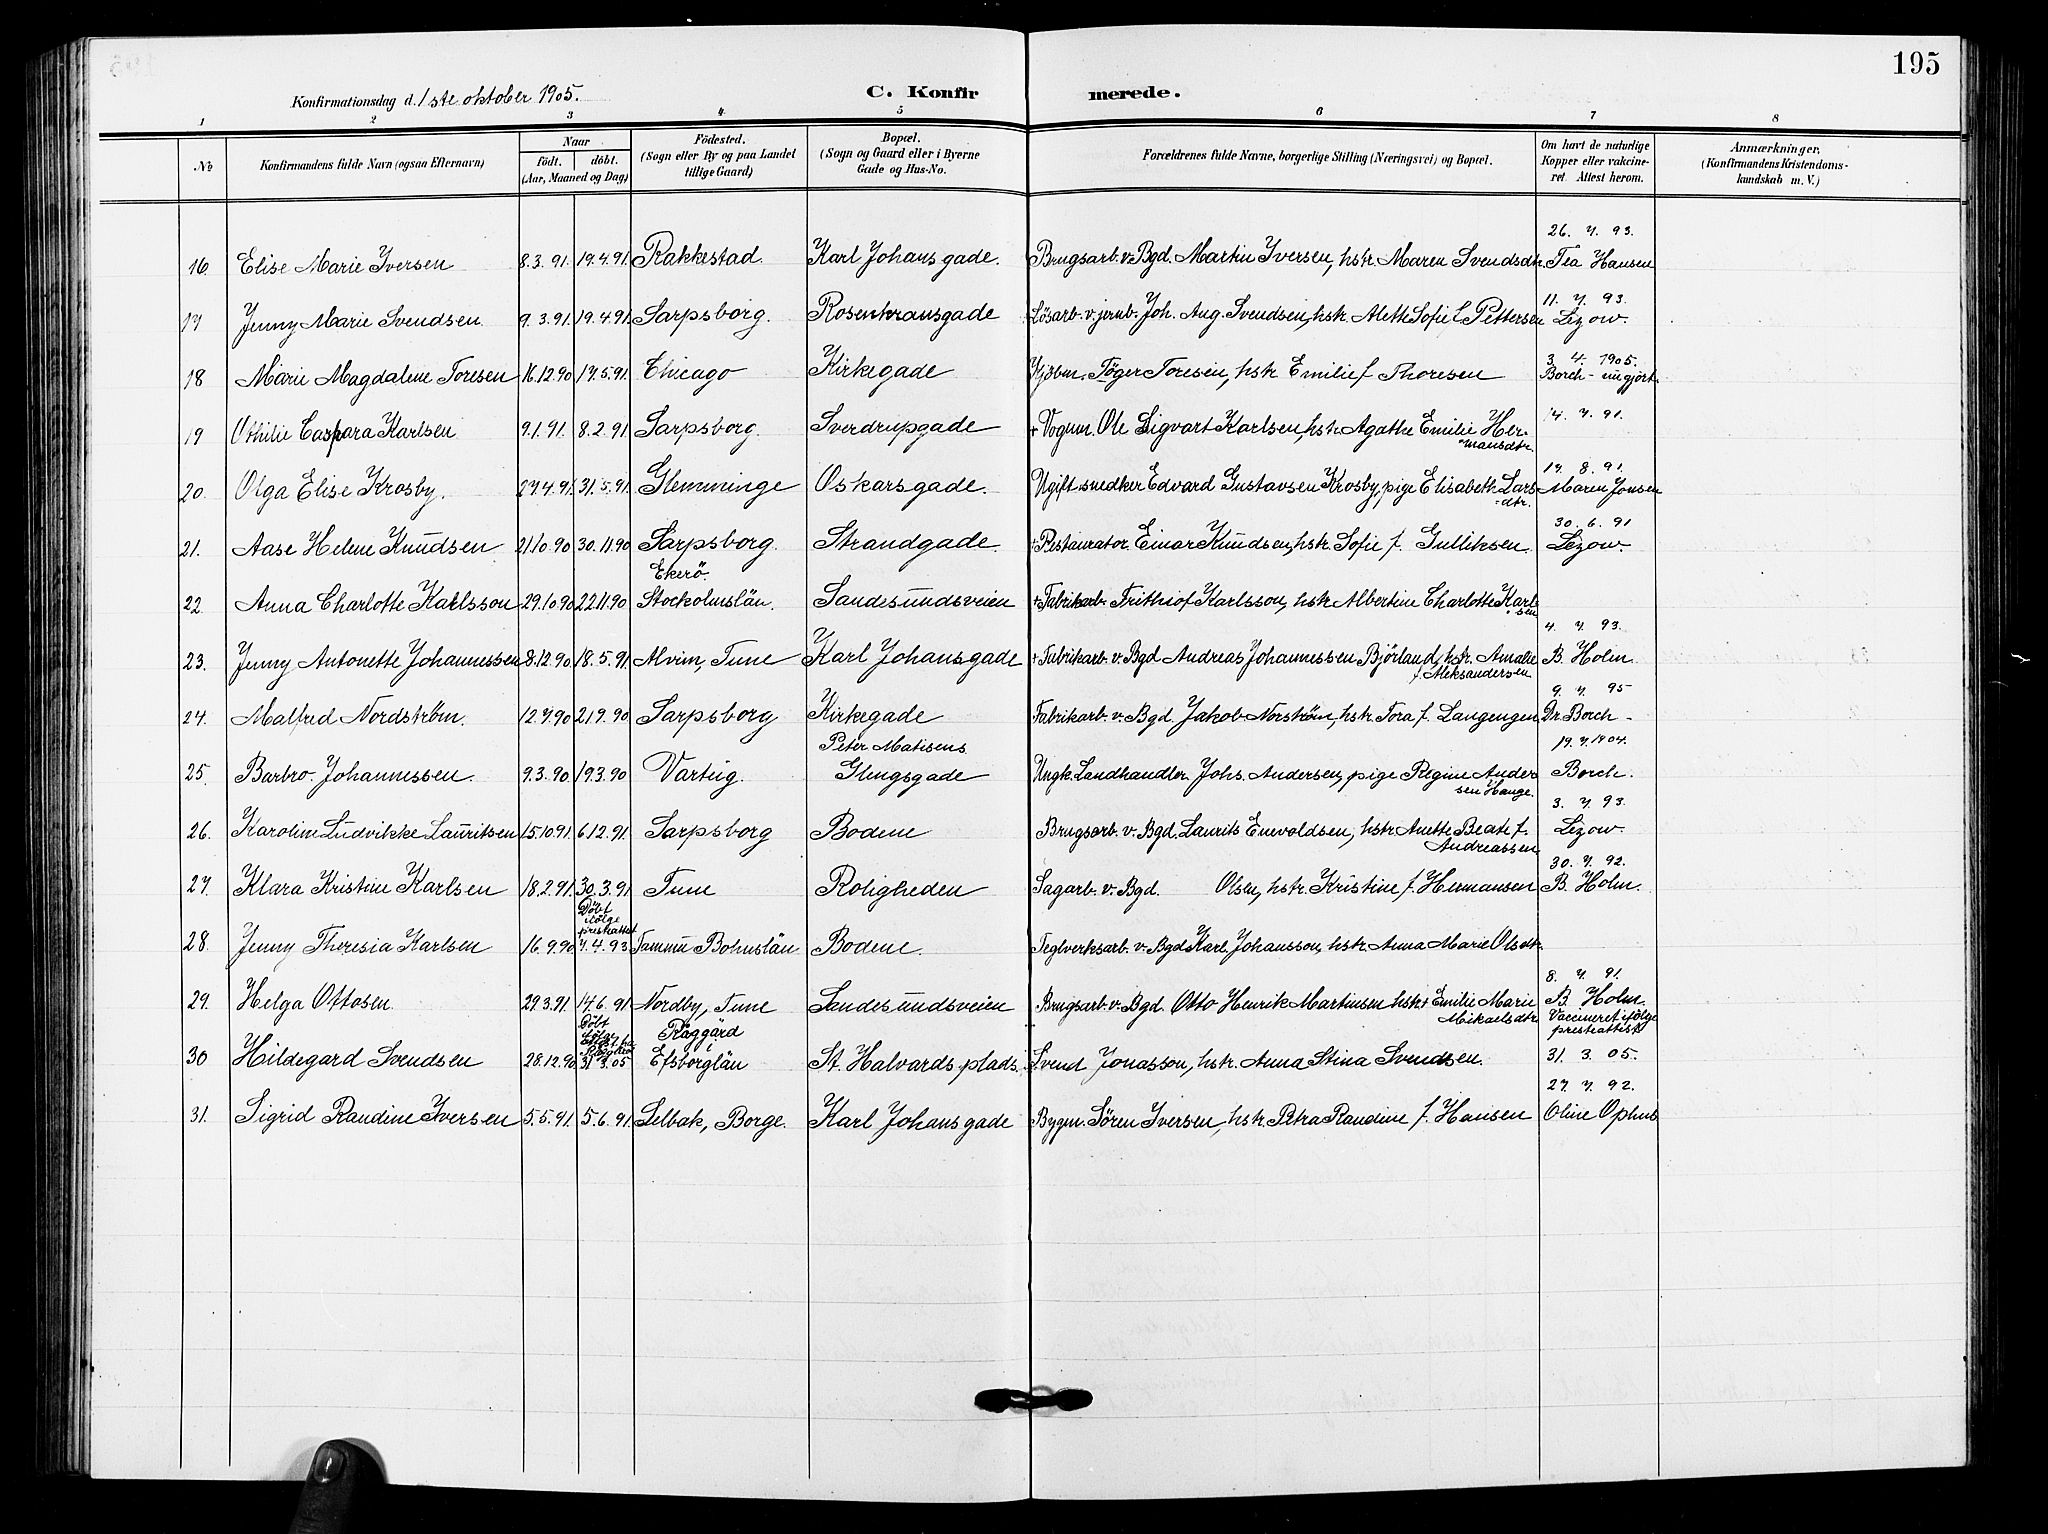 195
Konfirmationsdag d. 1ste oktober 1905.
C. Konfirmerede.
1 2 3 4 5 6 7 8
No
Konfirmandens fulde Navn (ogsaa Efternavn)
Naar
födt. döbt.
(Aar, Maaned og Dag)
Födested.
(Sogn eller By og paa Landet
tillige Gaard)
Bopæl.
(Sogn og Gaard eller i Byerne
Gade og Hus-No.
Forældrenes fulde Navne, borgerlige Stilling (Næringsvei) og Bopæl.
Om havt de naturlige
Kopper eller vakcine-
ret Attest herom.
Anmærkninger,
(Konfirmandens Kristendoms-
kundskab m. V.)
26. 7. 93.
16. Elise Marie Iversen 8.3.91. 19.4.91. Rakkestad. Karl Johans gade. Brugsarb. v. Bgd. Martin Iversen, hstr. Maren Svendsdtr. Tea Hansen
11. 7. 93.
17 Jenny Marie Svendsen. 9.3.91. 19.4.91. Sarpsborg. Rosenkransgade Lösarb. v. jernb. Joh. Aug. Svendsen, hstr. Alette Sofie f. Pettersen Lezow.
3. 4. 1905.
18 Marie Magdalene Toresen 16.12.90 17.5.91. Chicago Kirkegade Kjöbm. Töger Toresen, hstr Emilie f Thoresen Borch - umgjort.
14. 7. 91.
19 Othilie Caspara Karlsen 9.1.91. 8.2.91. Sarpsborg. Sverdrupgade + Vognm. Ole Sigvart Karlsen, hstr. Agathe Emilie Her-
mansdtr.
17. 8. 91.
20. Olga Elise Krosby. 27.4.91. 31.5.91. Glemminge Oskarsgade. Ugift snedker Edvard Gustavsen Krosby, pige Elisabeth Lars- Maren Jonsen
dtr.
30. 6. 91
21. Aase Helene Knudsen 21.10.90 30.11.90 Sarpsborg. Strandgade. + Restauratör Einar Knudsen, hstr. Sofie f. Gulliksen. Lezow.
Ekerö.
22 Anna Charlotte Karlsson 29.10.90 22.11.90 Stockolmslän. Sandesundsveien + Fabrikarb. Frithiof Karlsson, hstr Albertine Charlotte Karl-
sen
4. 7. 93.
23. Jenny Antonette Johannessen 8.12.90. 18.5.91. Alvim, Tune Karl Johansgade + Fabrikarb. v. Bgd Andreas Johannessen Björland, hstr. Amalie B. Holm.
f. Aleksandersen
9. 7. 95
24. Malfred Nordström. 12.7.90 21.9.90 Sarpsborg Kirkegade Fabrikarb. v. Bgd. Jakob Norström, hstr Tora f. Langengen Dr. Borch -
19. 7. 1904.
25. Barbro Johannessen. 9.3.90 19.3.90 Varteig. Peter Matisens
Glengsgade Ungk. Landhandler Johs. Andersen, pige Regine Ander Borch.
sen Hauge.
3. 7. 93.
26. Karoline Ludvikke Lauritsen 15.10.91. 6.12.91. Sarpsborg Bodene Brugsarb. v. Bgd. Laurits Enevoldsen, hstr Anette Beate f. Lezow.
Andreassen
30. 7. 92.
27. Klara Kristine Karlsen 18.2.91. 30.3.91. Tune Roligheden Sagarb. v. Bgd. Olsen, hstr. Kristine f. Hermansen B. Holm.
Döbt
ifölge
prestattest
28. Jenny Theresia Karlsen 16.9.90. 7.4.93 Tammu Bohuslän Bodene. Teglverksarb. v. Bgd Karl Johansson, hstr. Anna Marie Olsdtr.
8. 7. 91.
29. Helga Ottosen. 29.3.91. 14.6.91 Nordby, Tune Sandesundsveien Brugsarb. v. Bgd. Otto Henrik Martinsen hstr + Emilie Marie B. Holm.
Mikaelsdtr
Vaccineret ifölge
prestattest
Döbt
Råggärd
i
30 Hildegard Svendsen 28.12.90 31.3.05 Efsborglän St. Halvards plads. Svend Jonasson, hstr. Anna Stina Svendsen. 31. 3. 05.
27. 7. 92.
31. Sigrid Randine Iversen 5.5.91. 5.6.91. Selbak, Borge. Karl Johansgade Bygm. Sören Iversen, hstr. Petra Randine f. Hansen Oline Ophus